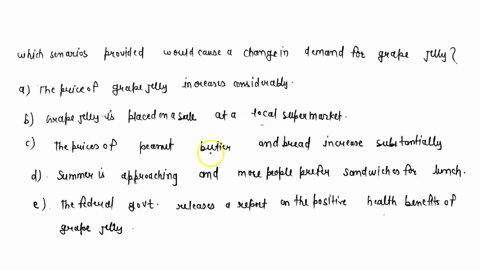 which senarios provided would cause a change in demand for grape jelly?
a) The price of grape jelly increases considerably.
b) Grape jelly is placed on a sale at a local supermarket.
c) The prices of peanut butter and bread increase substantially
d). Summer is approaching and more people prefer sandwiches for lunch.
e). The federal govt. releases a report on the positive health benefits of
grape jelly.